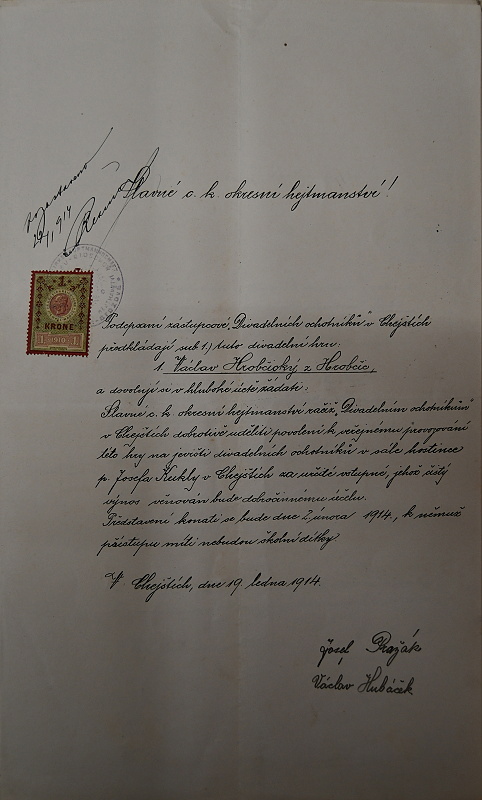 20/1 1914
Slavné c. k. okresní hejtmanství!
1
KRONE
1 1910 1
Podepsaní zástupcové „Divadelních ochotníků“ v Chejštích
předkládají sub 1.) tuto divadelní hru:
1. Václav Hrobčický z Hrobčic,
a dovolují si v hluboké úctě žádati:
Slavné c. k. okresní hejtmanství račiž „Divadelním ochotníkům“
v Chejštích dobrotivě uděliti povolení k veřejnému provozování
této hry na jevišti divadelních ochotníků v sále hostince
p. Josefa Kukly v Chejštích za určité vstupné, jehož čistý
výnos věnován bude dobročinnému účelu.
Představení konati se bude dne 2. února 1914., k němuž
přístupu míti nebudou školní dítky.
V Chejštích, dne 19. ledna 1914.
Josef Pražák
Václav Hubáček